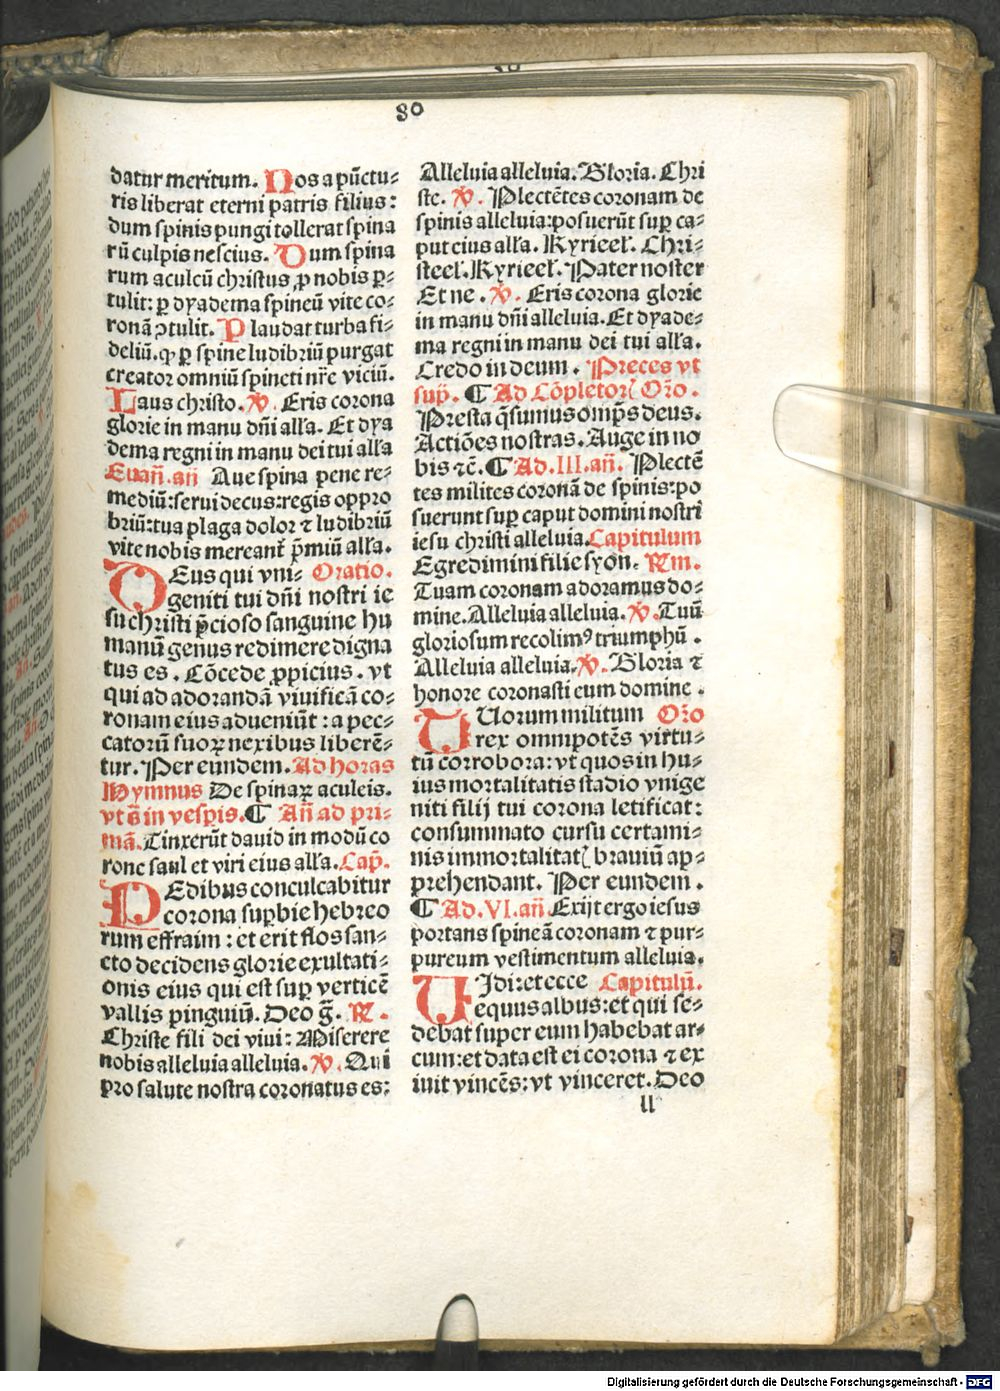 80
datur meritum. Nos a pũctu⸗
ris liberat eterni patris filius:
dum spinis pungi tollerat spina
rũ culpis nescius. Dum spina
rum aculcũ christus ꝓ nobis ꝑ⸗
tulit: ꝑ dyadema spineũ vite co⸗
ronã ꝯtulit. Plaudat turba fi⸗
deliũ. qꝫ ꝑ spine ludibriũ purgat
creator omniũ spincti nr̃e viciũ.
Laus christo. ℣. Eris corona
glorie in manu dñi alla. Et dya
dema regni in manu dei tui alla
Euañ. añ Aue spina pene re⸗
mediũ: serui decus: regis oppro
briũ: tua plaga dolor ⁊ ludibriũ
vite nobis mereant̃ p̃miũ alla.
DEus qui vni⸗ Oratio.
geniti tui dñi nostri ie
su christi p̃cioso sanguine hu
manũ genus redimere digna
tus es. Cõcede ꝓpicius. vt
qui ad adorandã viuificã co⸗
ronam eius adueniũt: a pec⸗
catoriũ suoꝝ nexibus liberẽ⸗
tur. Per eundem. Ad horas
Hymnus De spinaꝝ aculeis.
vt õ in vesꝑis. ¶ Añ ad pri⸗
mã. Cinxerũt dauid in modũ co
rone saul et viri eius alla. Cap̃.
PEdibus conculcabitur
corona suꝑbie hebreo
rum effraim: et erit flos san⸗
cto decidens glorie exultati⸗
onis eius qui est suꝑ verticẽ
vallis pinguiũ. Deo g̃. ℟.
Christe fili dei viui: Miserere
nobis alleluia alleluia. ℣. Qui
pro salute nostra coronatus es:
Alleluia alleluia. Gloria. Chri
ste. ℣. Plectẽtes coronam de
spinis alleluia: posuerũt suꝑ ca⸗
put eius alla. Kyrieel. Chri⸗
steel. Kyrieel. Pater noster
Et ne. ℣. Eris corona glorie
in manu dñi alleluia. Et dyade⸗
ma regni in manu dei tui alla.
Credo in deum. Preces vt
sup̃. ¶ Ad Cõpletoꝝ Oro.
Presta q̃sumus omp̃s deus.
Actiões nostras. Auge in no
bis ⁊c̃. ¶ Ad. III. añ. Plectẽ
tes milites coronã de spinis: po
suerunt suꝑ caput domini nostri
iesu christi alleluia. Capitulum
Egredimini filie syon. ℟m.
Tuam coronam adoramus do⸗
mine. Alleluia alleluia. ℣. Tuũ
gloriosum recolimꝰ triumphũ.
Alleluia alleluia. ℣. Gloria ⁊
honore coronasti eum domine.
TUorum militum Oro
rex omnipotẽs virtu⸗
tũ corrobora: vt quos in hu⸗
ius mortalitatis stadio vnige
niti filij tui corona letificat:
consummato cursu certami⸗
nis immortalitatꝭ brauiũ ap⸗
prehendant. Per eundem.
¶ Ad. VI. añ Exijt ergo iesus
portans spineã coronam ⁊ pur⸗
pureum vestimentum alleluia.
UIdi: et ecce Capitulũ.
equus albus: et qui se⸗
debat super eum habebat ar⸗
cum: et data est ei corona ⁊ ex
iuit vincẽs: vt vinceret. Deo
ll
Digitalisierung gefördert durch die Deutsche Forschungsgemeinschaft - DFG